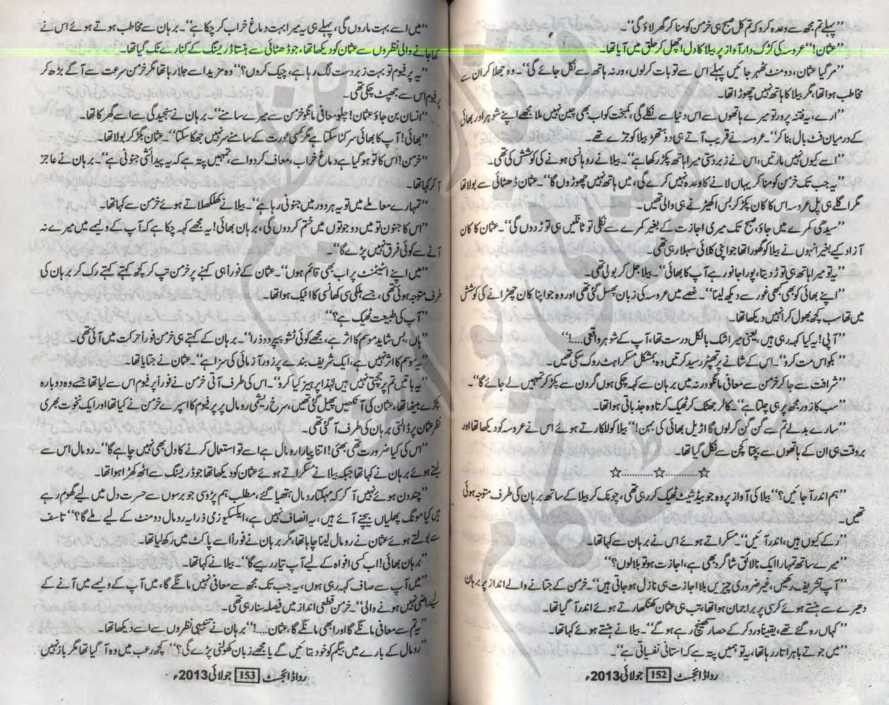 "پہلے تم مجھ سے وعدہ کرو کہ تم کل صبح ہی خرمن کو منا کر گھر لاؤ گی"۔
"عثمان!" عروسہ کی کڑک دار آواز پر بیلا کا دل اچھل کر حلق میں آیا تھا۔
"مر گیا عثمان، دو منٹ ٹھہر جائیں پہلے اس سے تو بات کر لوں، ورنہ ہاتھ سے نکل جائے گی"۔ وہ جھلا کر ان سے
مخاطب ہوا تھا، مگر بیلا کا ہاتھ نہیں چھوڑا تھا۔
"ارے، یہ فتنہ پرور تو میرے ہاتھوں سے اس دنیا سے نکلے گی، کمبخت کو اب بھی چین نہیں ملا مجھے اپنے شوہر اور بھائی
کے درمیان فٹ بال بنا کر"۔ عروسہ نے قریب آتے ہی دو تھپڑ بیلا کو جڑے تھے۔
"اسے کیوں نہیں مارتیں، اس نے زبردستی میرا ہاتھ پکڑ رکھا ہے"۔ بیلا نے روہانسی ہونے کی کوشش کی تھی۔
"یہ جب تک خرمن کو منا کر یہاں لانے کا وعدہ نہیں کرے گی، میں ہاتھ نہیں چھوڑوں گا"۔ عثمان ڈھٹائی سے بولا تھا
مگر اگلے ہی پل عروسہ اس کا کان پکڑ کر بس اکھیڑنے ہی والی تھیں۔
"سیدھی کمرے میں جاؤ، صبح تک میری اجازت کے بغیر کمرے سے نکلی تو ٹانگیں ہی توڑ دوں گی"۔ عثمان کا کان
آزاد کیے بغیر انہوں نے بیلا کو گھورا تھا جو اپنی کلائی سہلا رہی تھی۔
"یہ تو میرا ہاتھ ہی توڑ دیتا، پورا جانور ہے آپ کا بھائی"۔ بیلا جل کر بولی تھی۔
"اپنے بھائی کو بھی کبھی غور سے دیکھ لینا"۔ غصے میں عروسہ کی زبان پھسل گئی تھی اور وہ جو اپنا کان چھڑانے کی کوشش
میں تھا سب کچھ بھول کر انہیں دیکھا تھا۔
"آپی! یہ کیا کہہ رہی ہیں، یعنی میرا شک بالکل درست تھا، آپ کے شوہر واقعی....!"
"بکواس مت کرو"۔ اس کے شانے پر تھپڑ رسید کرتیں وہ بمشکل مسکراہٹ روک سکی تھیں۔
"شرافت سے جا کر خرمن سے معافی مانگو ورنہ میں برہان سے کہہ چکی ہوں گردن سے پکڑ کر تمہیں لے جائے گا"۔
"سب کا زور مجھ پر ہی چلتا ہے"۔ کالر جھٹک کر ٹھیک کرتا وہ جذباتی ہوا تھا۔
"سارے بدلے تم سے گن گن کر لوں گا اڑیل بھائی کی بہن!" بیلا کو للکارتے ہوئے اس نے عروسہ کو دیکھا تھا اور
بروقت ہی ان کے ہاتھوں سے بچتا کچن سے نکل گیا تھا۔
☆..........☆..........☆
"ہم اندر آ جائیں؟" بیلا کی آواز پر وہ جو بیڈ شیٹ ٹھیک کر رہی تھی، چونک کر بیلا کے ساتھ برہان کی طرف متوجہ ہوئی
تھیں۔
"رکے کیوں ہیں، اندر آئیں"۔ مسکراتے ہوئے اس نے برہان سے کہا تھا۔
"میرے ساتھ تمہارا ایک نالائق شاگرد بھی ہے، اجازت ہو تو بلا لوں؟"
"آپ تشریف رکھیں، غیر ضروری چیزیں بلا اجازت ہی نازل ہو جاتی ہیں"۔ خرمن کے جتانے والے انداز پر برہان
دھیرے سے ہنستے ہوئے کرسی پر براجمان ہوا تھا، تب ہی عثمان کھنکھارتے ہوئے اندر آ گیا تھا۔
"کہاں رہ گئے تھے، یقیناً ورد کر کے حصار کھینچ رہے ہو گے"۔ بیلا نے ہنستے ہوئے کہا تھا۔
"میں جوتے باہر اتار رہا تھا، یہ تو ہمیں پتہ ہے کہ استانی نفسیاتی ہے"۔
رداڈائجسٹ 152 جولائی 2013ء
"میں اسے بہت ماروں گی، پہلے ہی یہ میرا بہت دماغ خراب کر چکا ہے"۔ برہان سے مخاطب ہوتے ہوئے اس نے
کھا جانے والی نظروں سے عثمان کو دیکھا تھا، جو ڈھٹائی سے ہنستا ڈریسنگ کے کنارے ٹک گیا تھا۔
"یہ پرفیوم تو بہت زبردست لگ رہا ہے، چیک کروں؟" وہ مزید اسے جلا رہا تھا مگر خرمن سرعت سے آگے بڑھ کر
پرفیوم اس سے جھپٹ چکی تھی۔
"انسان بن جاؤ عثمان! چلو معافی مانگو خرمن سے میرے سامنے"۔ برہان نے سنجیدگی سے اسے گھرکا تھا۔
"بھائی! آپ کا بھائی سر کٹا سکتا ہے مگر کسی عورت کے سامنے سر نہیں جھکا سکتا"۔ عثمان بگڑ کر بولا تھا۔
"خرمن! اس کا تو ہو گیا ہے دماغ خراب، معاف کر دو اسے، تمہیں پتہ ہے کہ یہ پیدائشی جنونی ہے"۔ برہان نے عاجز
آ کر کہا تھا۔
"تمہارے معاملے میں تو یہ ہر دور میں جنونی رہا ہے"۔ بیلا نے کھلکھلاتے ہوئے خرمن سے کہا تھا۔
"اس کا جنون تو میں دو جوتوں میں ختم کر دوں گی، برہان بھائی! یہ مجھے کہہ چکا ہے کہ آپ کے ولیمے میں میرے نہ
آنے سے کوئی فرق نہیں پڑے گا"۔
"میں اپنے اسٹیٹمنٹ پر اب بھی قائم ہوں"۔ عثمان کے فوراً ہی کہنے پر خرمن تپ کر کچھ کہتے کہتے رک کر برہان کی
طرف متوجہ ہوئی تھی، جسے ہلکی سی کھانسی کا اٹیک ہوا تھا۔
"آپ کی طبیعت ٹھیک ہے؟"
"ہاں، بس شاید موسم کا اثر ہے، مجھے کوئی ٹشو پیپر دو ذرا"۔ برہان کے کہتے ہی خرمن فوراً حرکت میں آئی تھی۔
"یہ موسم کا اثر نہیں ہے، ایک شریف بندے پر زور آزمائی کی سزا ہے"۔ عثمان نے جتایا تھا۔
"یہ باتیں تم پر جچتی نہیں ہیں لہٰذا پرہیز کیا کرو"۔ اس کی طرف آتی خرمن نے فوراً پرفیوم اس سے لیا تھا جسے وہ دوبارہ
پکڑے بیٹھا تھا، عثمان کی آنکھیں پھیل گئی تھیں، سرخ ریشمی رومال پر پرفیوم کا اسپرے خرمن نے کیا تھا اور ایک نخوت بھری
نظر عثمان پر ڈالتی برہان کی طرف آ گئی تھی۔
"اس کی کیا ضرورت تھی بھئی! اتنا پیارا رومال ہے اسے تو استعمال کرنے کا دل بھی نہیں چاہے گا"۔ رومال اس سے
لیتے ہوئے برہان نے کہا تھا جبکہ بیلا نے مسکراتے ہوئے عثمان کو دیکھا تھا جو ڈریسنگ سے اٹھ کھڑا ہوا تھا۔
"چند دن ہوئے نہیں آ کر کہ مہکتا رومال ہتھیا گئے، مطلب ہم پڑوسی جو برسوں سے حسرت دل میں لیے گھوم رہے
ہیں کیا مونگ پھلیاں بیچنے آئے ہیں، یہ انصاف نہیں ہے، ایکسکیوزمی ذرا یہ رومال دو منٹ کے لیے ملے گا؟" تاسف
سے بولتے ہوئے عثمان نے رومال لینا چاہا تھا، مگر برہان نے فوراً اسے پاکٹ میں رکھ لیا تھا۔
"برہان بھائی! اب کسی افواہ کے لیے آپ تیار رہیے گا"۔ بیلا نے کہا تھا۔
"میں آپ سے صاف کہہ رہی ہوں، یہ جب تک مجھ سے معافی نہیں مانگے گا، میں آپ کے ولیمے میں آنے کے
لیے راضی نہیں ہونے والی"۔ خرمن قطعی انداز میں فیصلہ سنا رہی تھی۔
"یہ تم سے معافی مانگے گا اور ابھی مانگے گا، عثمان....!" برہان نے تنبیہی نظروں سے اسے دیکھا تھا۔
"رومال کے بارے میں بیگم کو خود بتائیں گے یا مجھے زبان کھولنی پڑے گی؟" کچھ رعب میں وہ آ گیا تھا مگر باز نہیں
رداڈائجسٹ 153 جولائی 2013ء